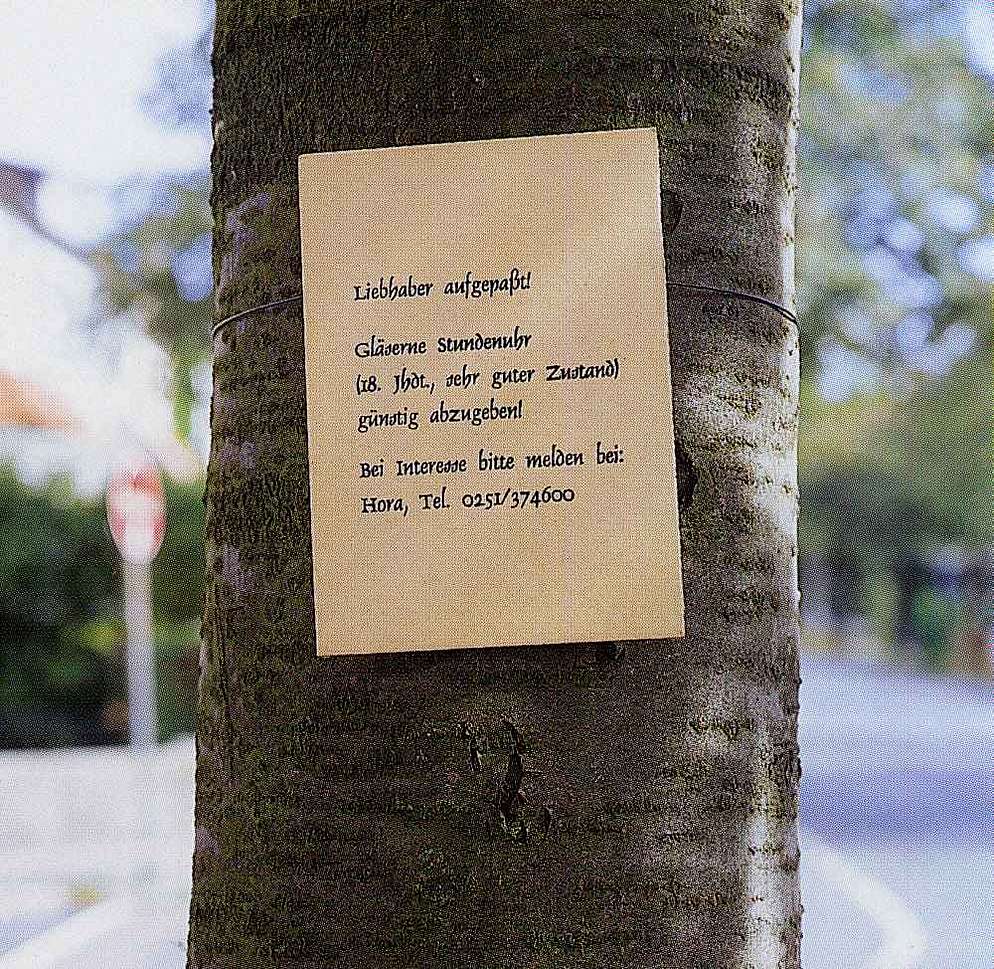 Liebhaber aufgepaßt!
Gläserne Stundenuhr
(18. Jhdt., sehr guter Zustand)
günstig abzugeben!
Bei Interesse bitte melden bei:
Hora, Tel. 0251/374600